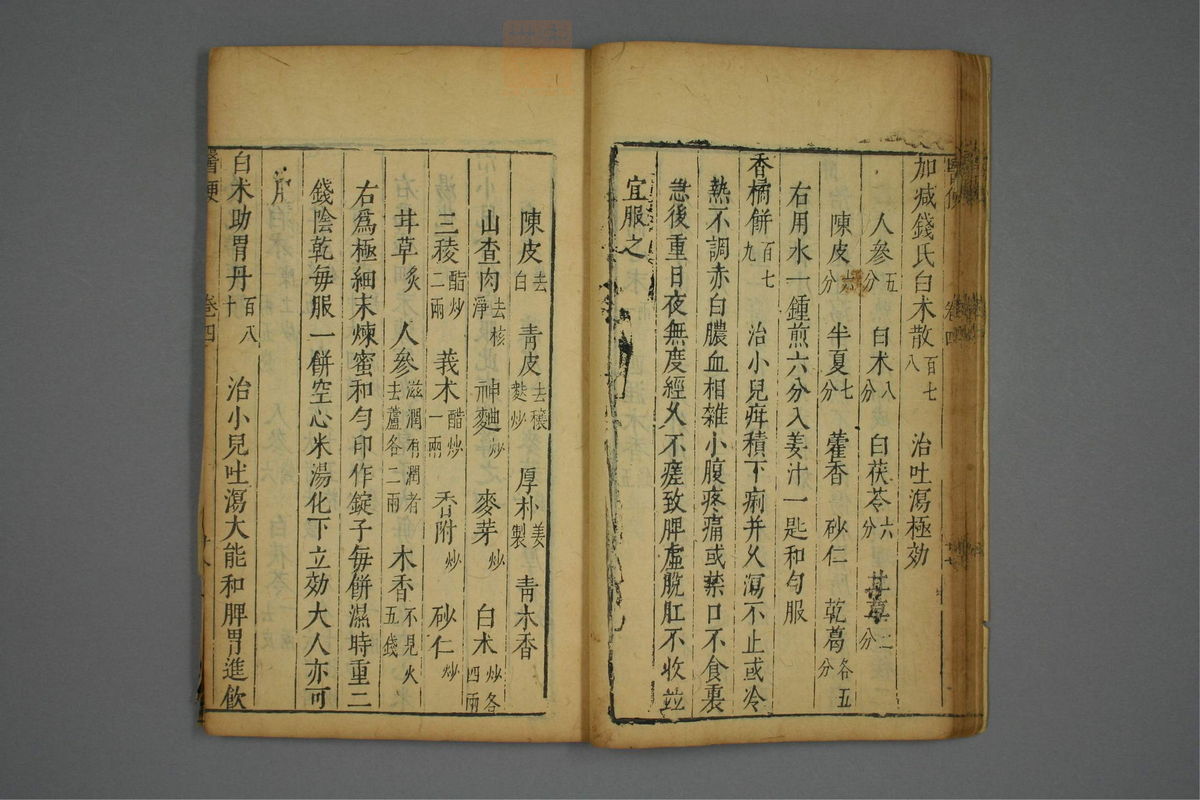 加減錢氏白术散百七八 治吐瀉極効
人參五分 白术八分 白茯苓六分 甘草二分
陳皮六分 半夏七分 藿香 砂仁 乾葛各五分
右用水一鍾煎六分入姜汁一匙和勻服
香橘餅百七九 治小兒疳積下痢并久瀉不止或冷
熱不調赤白膿血相雜小腹疼痛或禁口不食裏
急後重日夜無度經久不瘥致脾虛脫肛不收並
宜服之
陳皮去白 青皮去穰麩炒 厚朴姜製 青木香
山查肉去核淨 神麯炒 麥芽炒 白术炒各四兩
三稜醋炒二兩 莪术醋炒一兩 香附炒 砂仁炒
甘草炙 人參滋潤有潤者去蘆各二兩 木香不見火五錢
右爲極細末煉蜜和勻印作錠子每餅濕時重二
錢陰乾每服一餅空心米湯化下立効大人亦可
用
白术助胃丹百八十 治小兒吐瀉大能和脾胃進飲
醫便 卷四